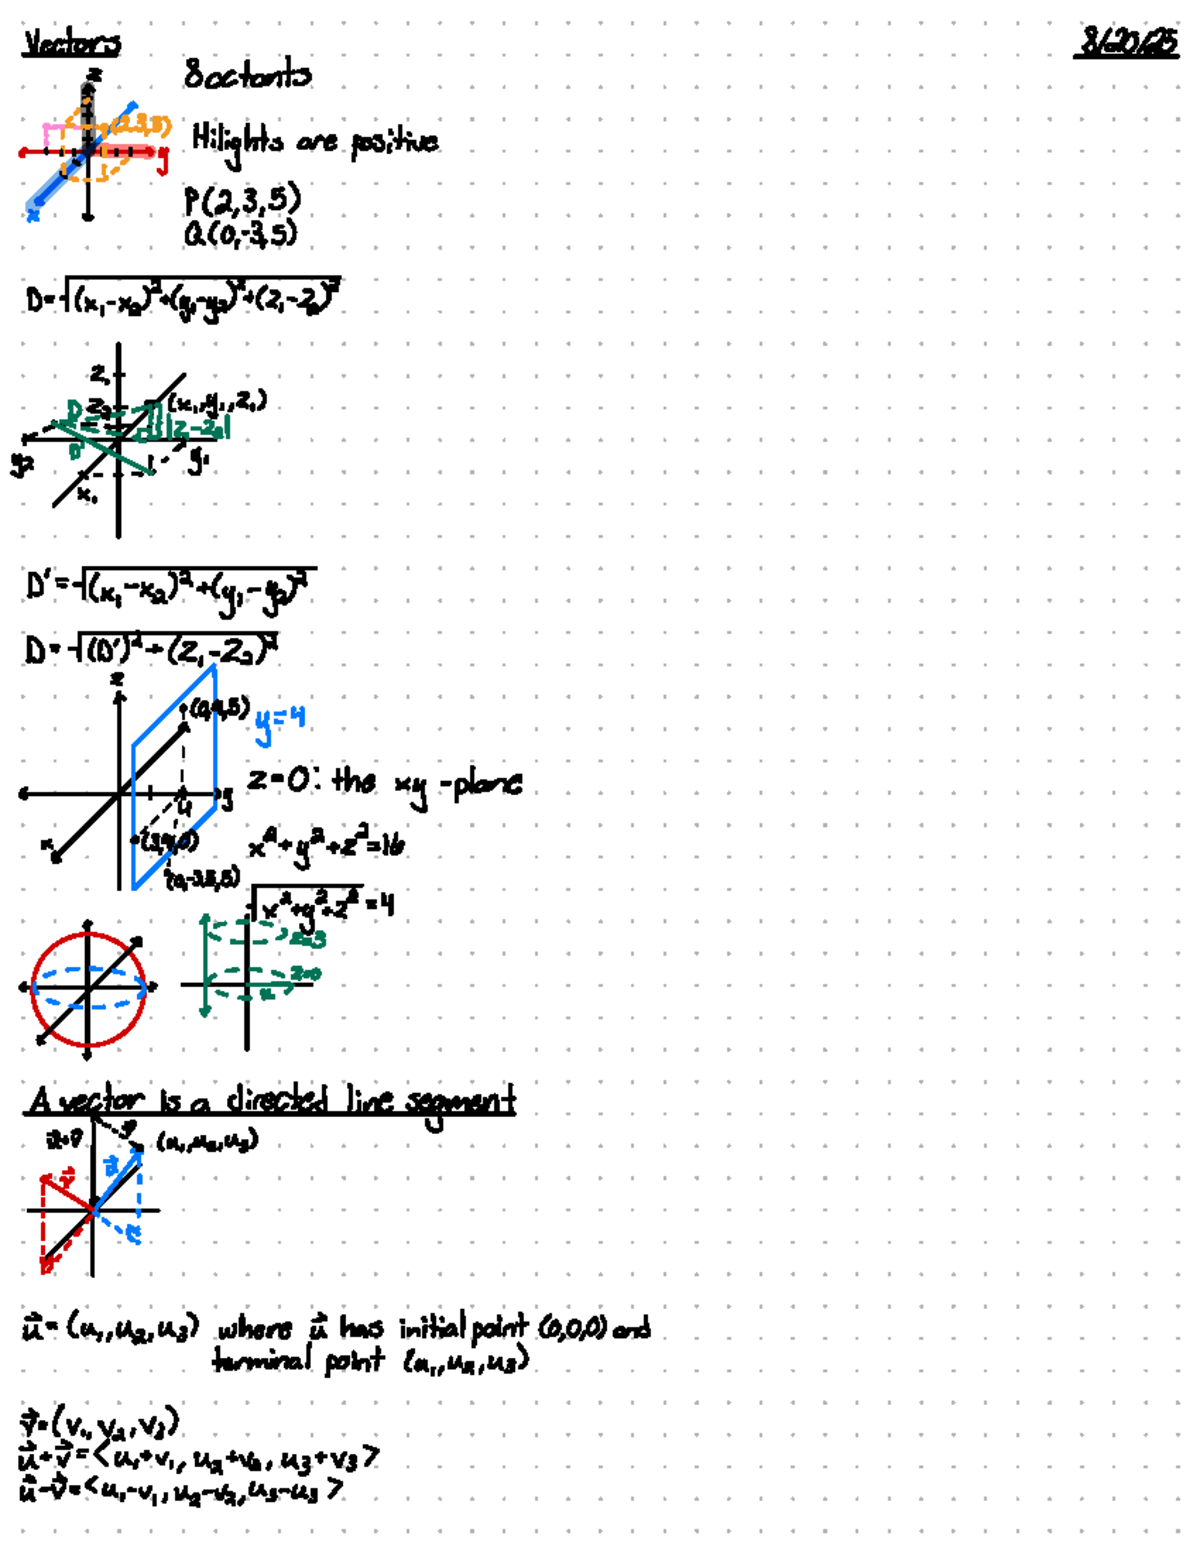 Vectors
8/20/25
z
8 octants
(2,3,5)
Hilights are positive
y
P(2,3,5)
x
Q(0,-3,5)
D=√(x₁-x₂)²+(y₁-y₂)²+(z₁-z₂)²
z₁
z₂
D
(x₁,y₁,z₁)
|z₁-z₂|
D'
y₂
y₁
x₁
D'=√(x₁-x₂)²+(y₁-y₂)²
D=√(D')²+(z₁-z₂)²
z
(0,4,5)
y=4
z=0: the xy-plane
4
y
x
(3,4,0)
x²+y²+z²=16
√x²+y²+z²=4
z=3
z=0
A vector is a directed line segment
(u₁,u₂,u₃)
u⃗
u⃗=(u₁,u₂,u₃) where u⃗ has initial point (0,0,0) and
terminal point (u₁,u₂,u₃)
v⃗=(v₁,v₂,v₃)
u⃗+v⃗=<u₁+v₁, u₂+v₂, u₃+v₃>
u⃗-v⃗=<u₁-v₁, u₂-v₂, u₃-u₃>